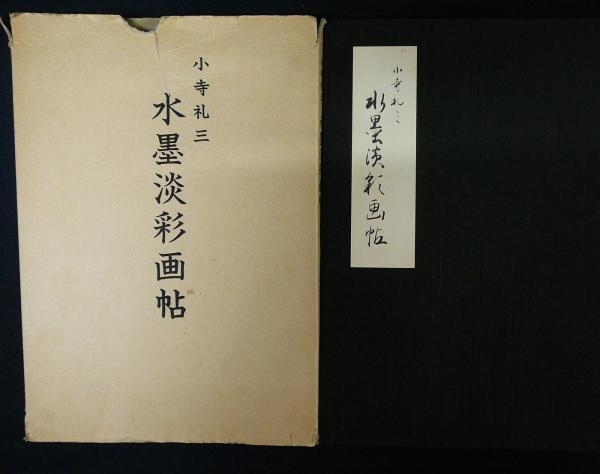 小寺礼三
水墨淡彩画帖
小寺礼三
水墨淡彩画帖